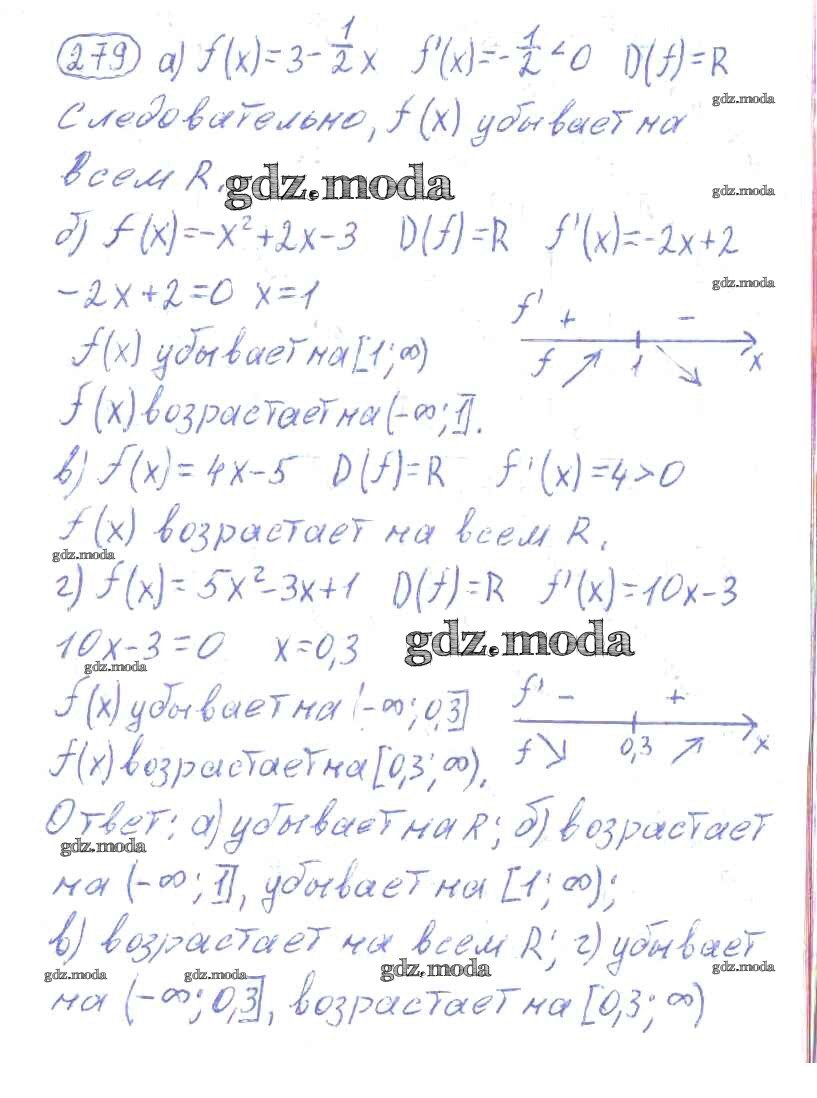 279 а) f(x)=3-1/2x f'(x)=-1/2<0 D(f)=R
gdz.moda
Следовательно, f(x) убывает на
всем R.
gdz.moda
gdz.moda
б) f(x)=-x²+2x-3 D(f)=R f'(x)=-2x+2
gdz.moda
-2x+2=0 x=1
f' + -
f 1 x
f(x) убывает на [1;∞)
f(x) возрастает на (-∞;1].
в) f(x)=4x-5 D(f)=R f'(x)=4>0
f(x) возрастает на всем R.
gdz.moda
г) f(x)=5x²-3x+1 D(f)=R f'(x)=10x-3
10x-3=0 x=0,3
gdz.moda
gdz.moda
f' - +
f 0,3 x
f(x) убывает на (-∞;0,3]
f(x) возрастает на [0,3;∞).
Ответ: а) убывает на R; б) возрастает
gdz.moda
на (-∞;1], убывает на [1;∞);
в) возрастает на всем R; г) убывает
gdz.moda gdz.moda gdz.moda gdz.moda
на (-∞;0,3], возрастает на [0,3;∞)